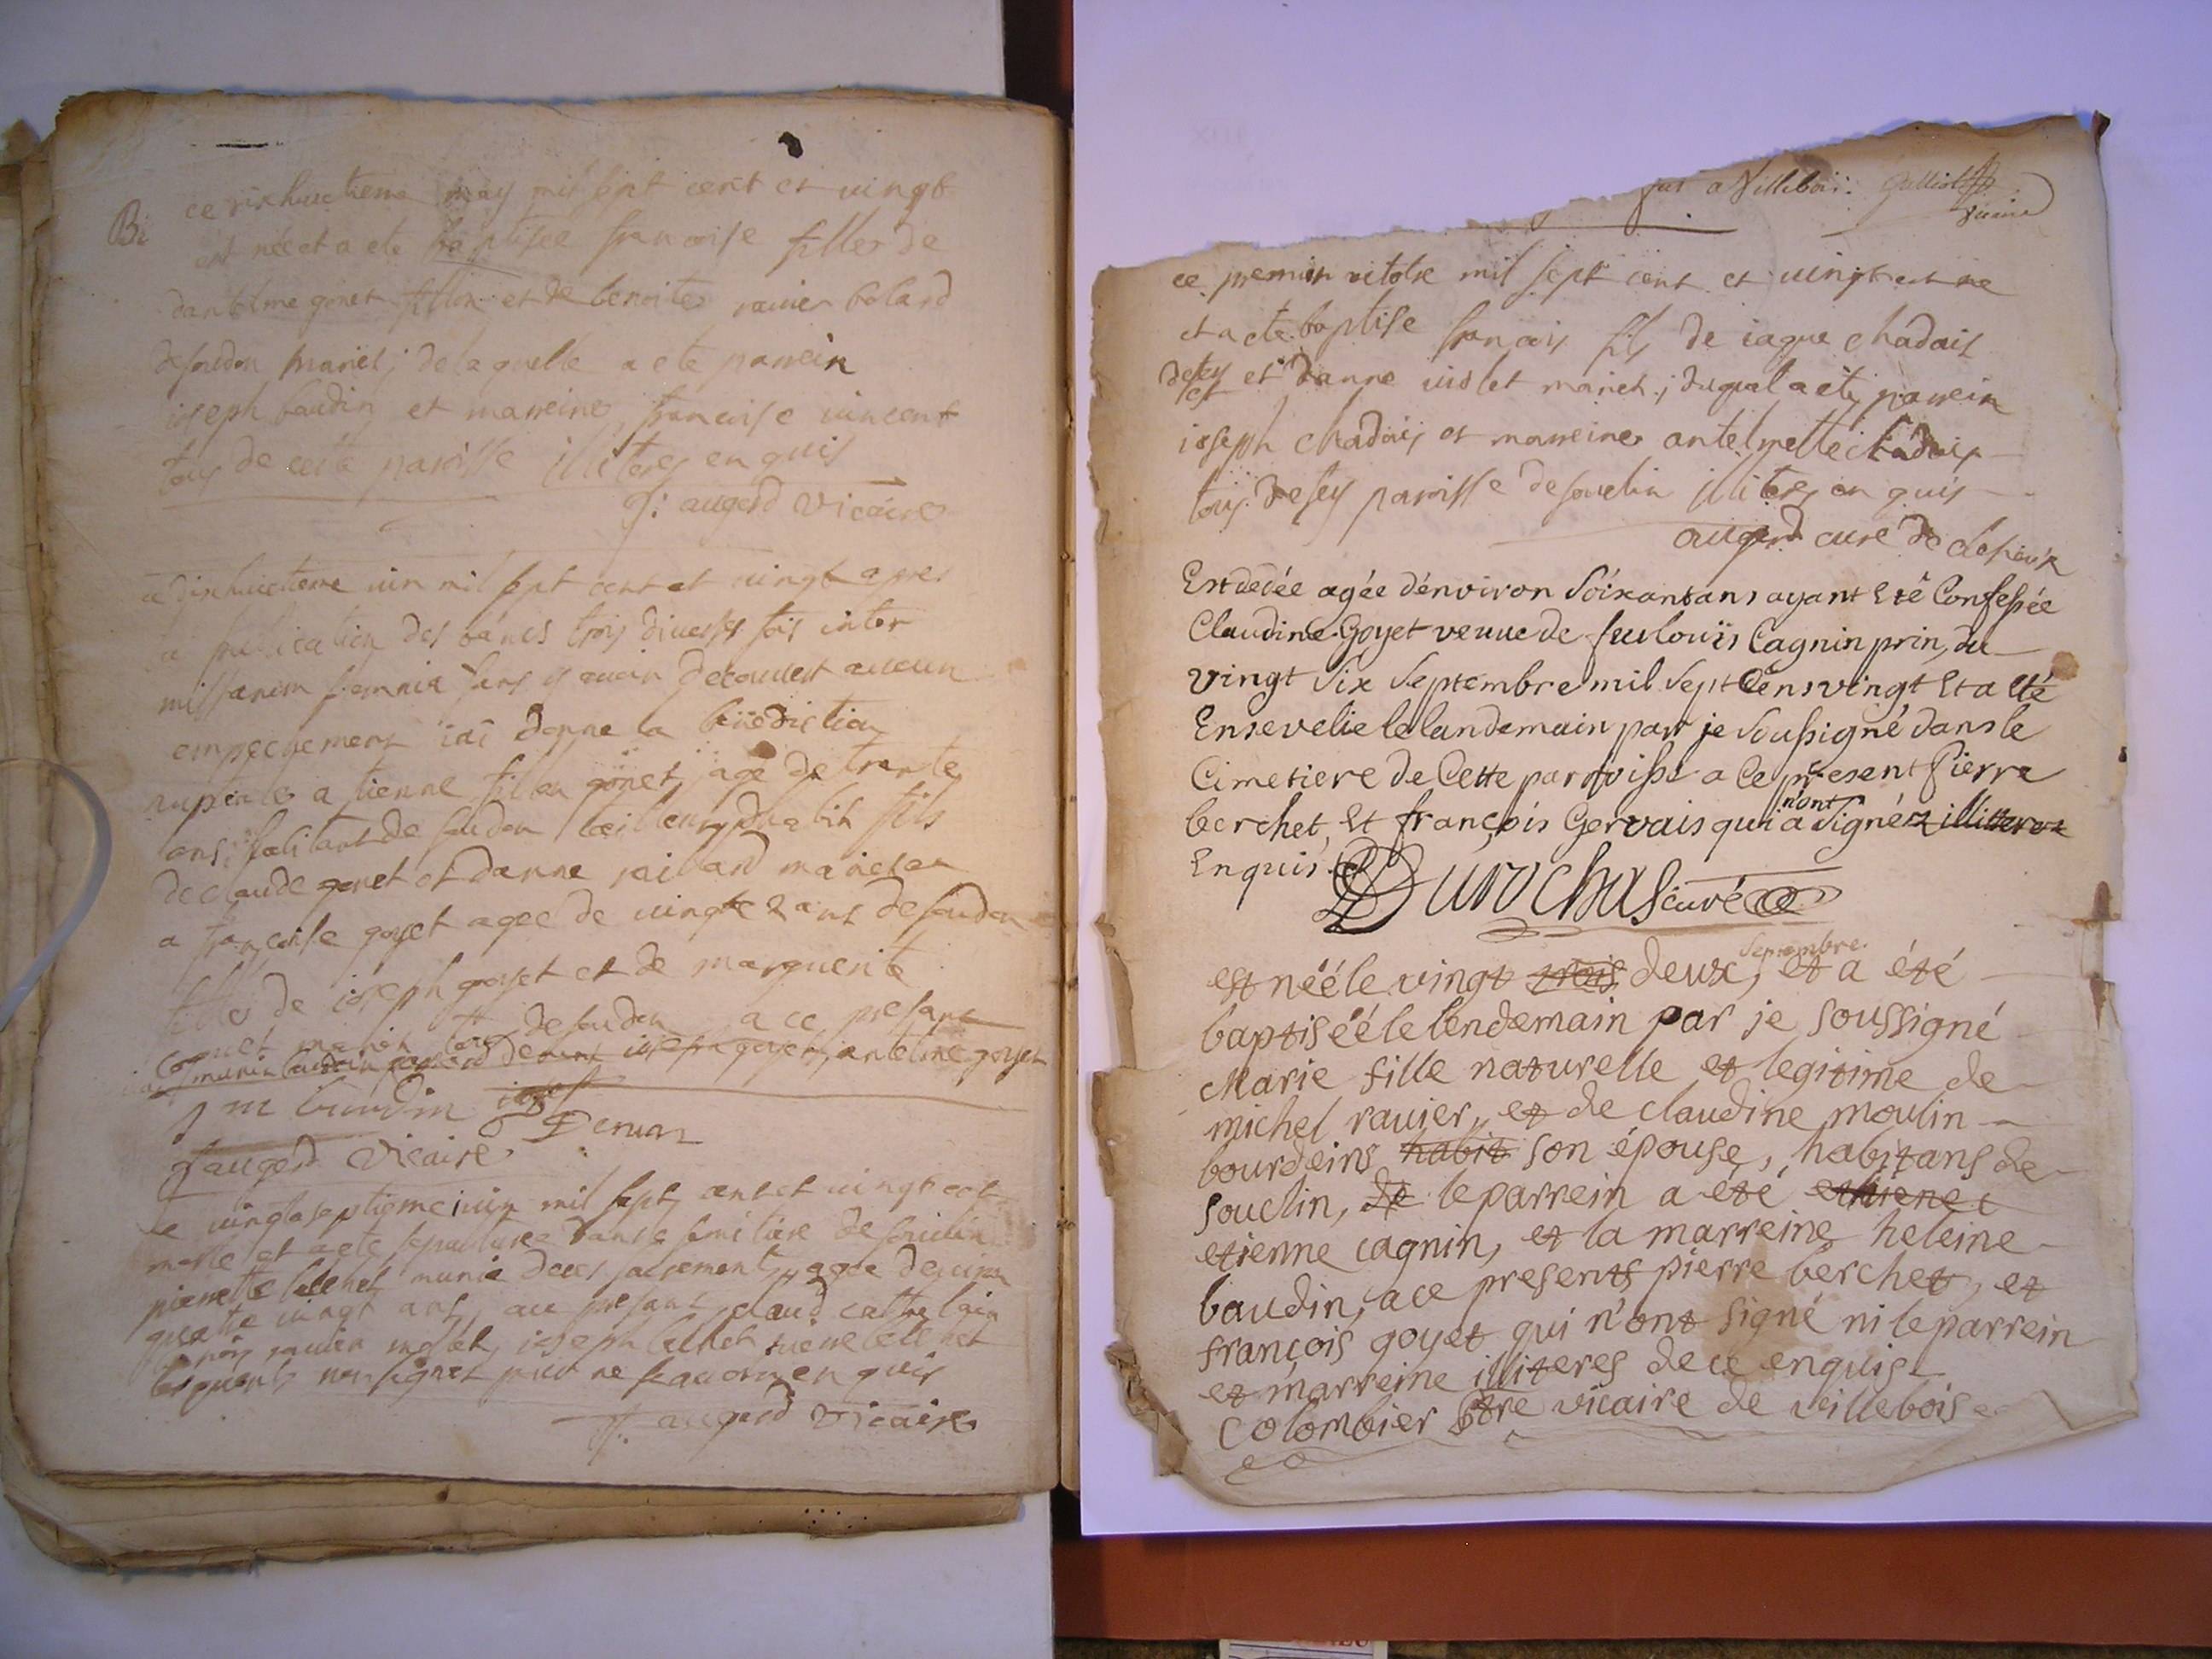 Bi
ce dixhuictieme may mil sept cent et vingt
est née et a ete baptisee francoise filles de
dantelme gonet fillon et de benoites ravier bolard
desoudon mariés, de laquelle a ete parrein
ioseph baudin et marreine francoise vincent
tous de cette paroisse illiteres enquis
J: augerd vicaire
ce dixhuictieme iuin mil sept cent et vingt apres
la publication des bancs trois diverses fois inter
missarum solemnia sans y avoir decouvert aucun
empechement iai donne la bénédiction
nuptiale a tienne gonet age de trente
ans habitant de soudon fils
de claude gonet et danne raviard mariés
a françoise goyet agee de vingt 2 ans de soudon
filles de ioseph goyet et de marguerite
mariés tous de soudon a ce presant
ioseph goyet, antelme goyet
J m baudin
J augerd vicaire
le vingtaseptieme iuin mil sept cent et vingt est
morte et a ete sepulturee dans le semitiere de souclin
pierrette munie de ces sacrements agee denviron
quatre vingt ans, au presant claud
ravier molet, ioseph
lesquels non signes pour ne scavoir enquis
J. augerd vicaire
par a Villebois. Galliot
vicaire
ce premier octobre mil sept cent et vingt est ne
et a ete baptise francois fils de iaque chadois
desey et danne violet mariés, duquel a eté parrein
ioseph chadois et marreines antelmette chadois
tous desey paroisse desouclin illiteres enquis
augerd curé de
Est dédée agée dénviron Soixantans ayant Eté Confessée
Claudine Goyet veuve de feu louïs Cagnin prin, du
vingt Six Septembre mil Sept Cens vingt Et a été
Ensevelie le landemain par je Soussigné dans le
Cimetiere de Cette parroisse a Ce présent Pierre
berchet, Et françois Gervais qui a n'ont Signé illiteres
Enquis.
Durochas curé
est néé le vingt trois deux, septembre. et a été
baptiséé le lendemain par je soussigné
Marie fille naturelle et legitime de
michel ravier, et de claudine moulin
bourdeins habit son épouse, habitans de
souclin, de le parrein a été ethiene
etienne cagnin, et la marreine heleine
baudin, a ce presents pierre berchet, et
françois goyet qui n'ont signé ni le parrein
et marreine illiteres de ce enquis
colombier ptre vicaire de villebois